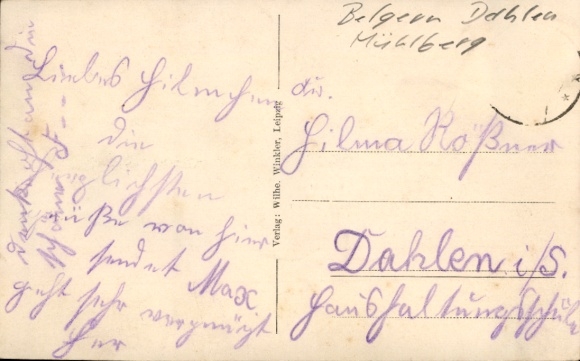 Belgern Dahlen
Mühlberg
Liebes Hilmchen
die
herzlichsten
Grüße von hier
sendet Max
geht sehr vergnügt
her
Verlag: Wilh. Winkler, Leipzig
Hilma Rößner
Dahlen i/S.
Haushaltungsschule